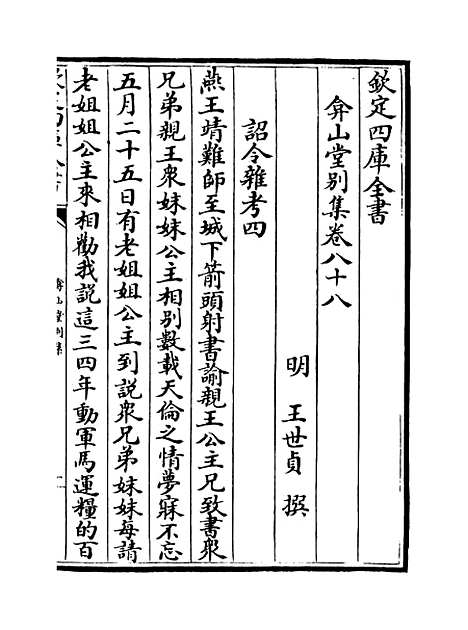 欽定四庫全書
弇山堂別集卷八十八
明 王世貞 撰
詔令雜考四
燕王靖難師至城下箭頭射書諭親王公主兄致書衆
兄弟親王衆妹妹公主相別數載天倫之情夢寐不忘
五月二十五日有老姐姐公主到說衆兄弟妹妹每請
老姐姐公主來相勸我說這三四年動軍馬運糧的百
弇山堂別集
一